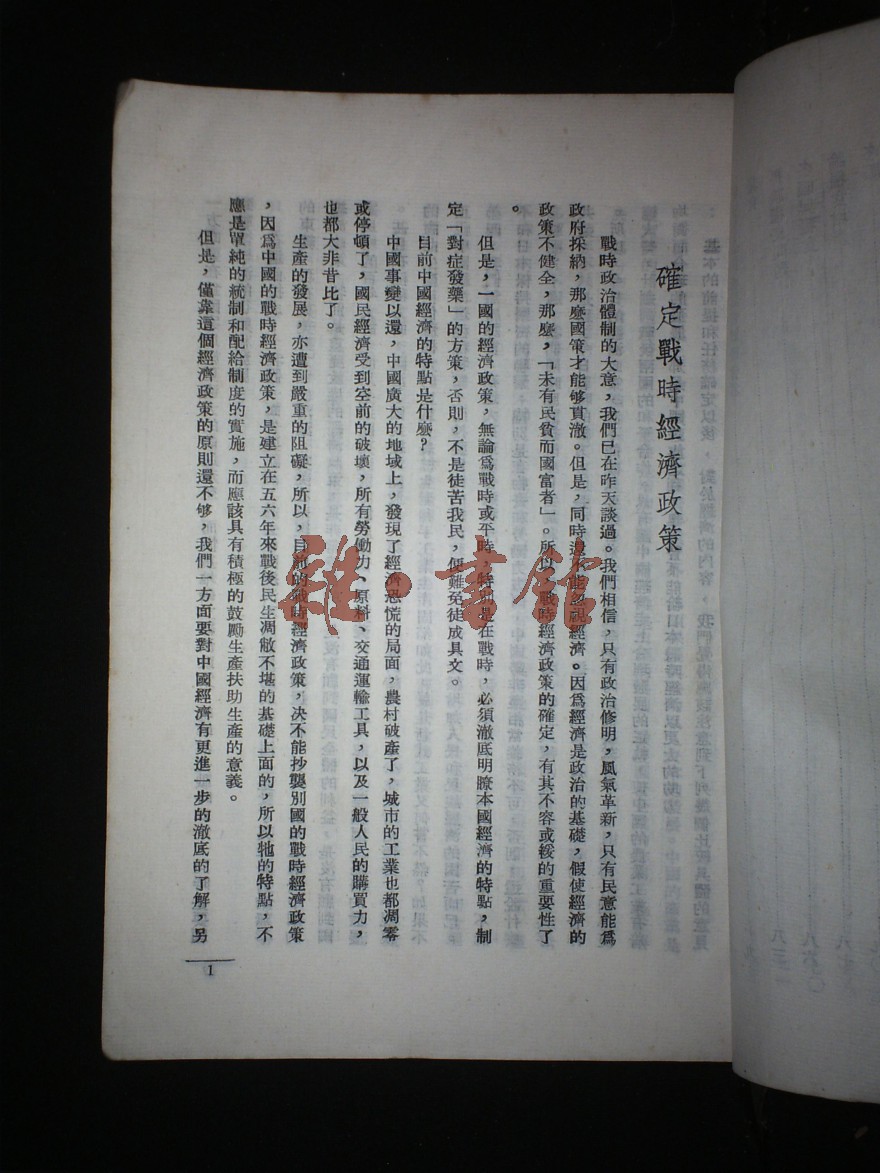 確定戰時經濟政策
戰時政治體制的大意，我們已在昨天談過。我們相信，只有政治修明，風氣革新，只有民意能爲
政府採納，那麼國策才能够貫澈。但是，同時還不能忽視經濟。因爲經濟是政治的基礎，假使經濟的
政策不健全，那麼，「未有民貧而國富者」。所以，戰時經濟政策的確定，有其不容或緩的重要性了
。
但是，一國的經濟政策，無論爲戰時或平時，特別是在戰時，必須澈底明瞭本國經濟的特點，制
定「對症發藥」的方策，否則，不是徒苦我民，便難免徒成具文。
目前中國經濟的特點是什麼？
中國事變以還，中國廣大的地域上，發現了經濟恐慌的局面，農村破產了，城市的工業也都凋零
或停頓了，國民經濟受到空前的破壞，所有勞働力、原料、交通運輸工具，以及一般人民的購買力，
也都大非昔比了。
生產的發展，亦遭到嚴重的阻礙，所以，目前的戰時經濟政策，决不能抄襲別國的戰時經濟政策
，因爲中國的戰時經濟政策，是建立在五六年來戰後民生凋敝不堪的基礎上面的，所以牠的特點，不
應是單純的統制和配給制度的實施，而應該具有積極的鼓勵生產扶助生產的意義。
但是，僅靠這個經濟政策的原則還不够，我們一方面要對中國經濟有更進一步的澈底的了解，另
1
雜·書館